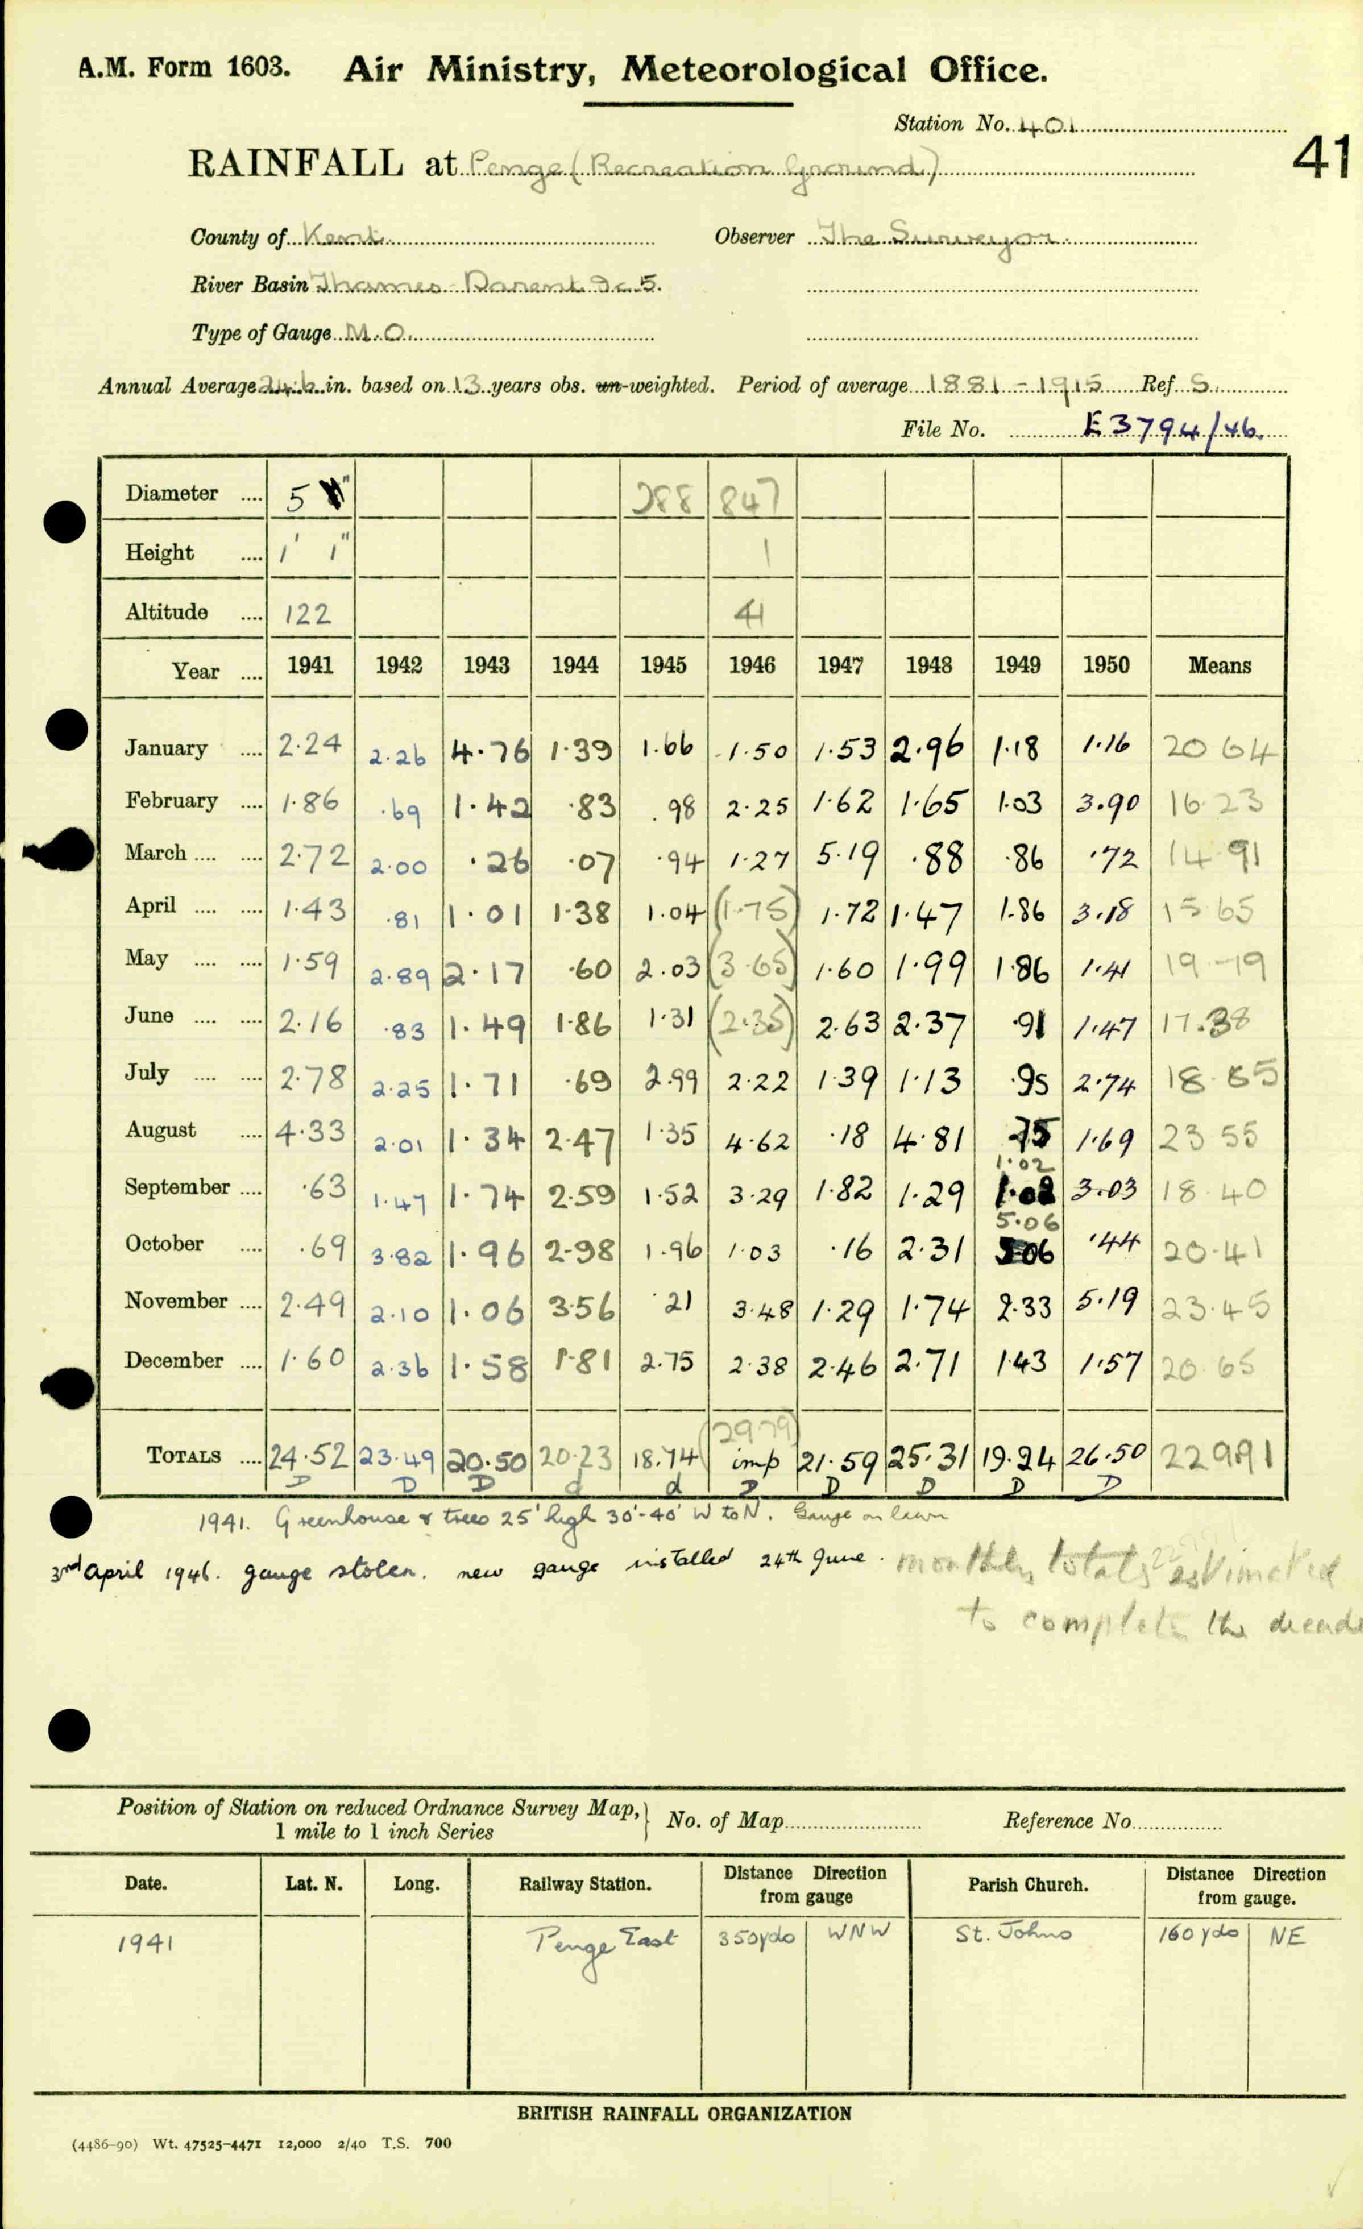 A.M. Form 1603. Air Ministry, Meteorological Office.
Station No. 401
41
RAINFALL at Penge (Recreation Ground)
County of Kent Observer The Surveyor.
River Basin Thames - Darent 9c.5.
Type of Gauge M.O.
Annual Average 24.6 in. based on 13 years obs. un-weighted. Period of average 1881 - 1915 Ref. S.
File No. E3794/46.
Diameter .... 5 " 288 847
Height .... 1' 1" 1
Altitude .... 122 41
Year .... 1941 1942 1943 1944 1945 1946 1947 1948 1949 1950 Means
January .... 2.24 2.26 4.76 1.39 1.66 1.50 1.53 2.96 1.18 1.16 20 64
February .... 1.86 .69 1.42 .83 .98 2.25 1.62 1.65 1.03 3.90 16.23
March .... .... 2.72 2.00 .26 .07 .94 1.27 5.19 .88 .86 .72 14.91
April .... .... 1.43 .81 1.01 1.38 1.04 (1.75) 1.72 1.47 1.86 3.18 15.65
May .... .... 1.59 2.89 2.17 .60 2.03 (3.65) 1.60 1.99 1.86 1.41 19.79
June .... .... 2.16 .83 1.49 1.86 1.31 (2.35) 2.63 2.37 .91 1.47 17.38
July .... .... 2.78 2.25 1.71 .69 2.99 2.22 1.39 1.13 .95 2.74 18.85
August .... 4.33 2.01 1.34 2.47 1.35 4.62 .18 4.81 .75 1.69 23 55
1.02
September .... .63 1.47 1.74 2.59 1.52 3.29 1.82 1.29 1.02 3.03 18.40
5.06
October .... .69 3.82 1.96 2.98 1.96 1.03 .16 2.31 5.06 .44 20.41
November .... 2.49 2.10 1.06 3.56 .21 3.48 1.29 1.74 2.33 5.19 23.45
December .... 1.60 2.36 1.58 1.81 2.75 2.38 2.46 2.71 1.43 1.57 20.65
(29.79)
TOTALS .... 24.52 23.49 20.50 20.23 18.74 imp 21.59 25.31 19.24 26.50 229.91
D D D d d D D D D D
1941. Greenhouse & trees 25' high 30'-40' W to N. Gauge on lawn
3rd April 1946. gauge stolen. new gauge installed 24th June. monthly totals estimated
to complete the decade
Position of Station on reduced Ordnance Survey Map, 1 mile to 1 inch Series No. of Map Reference No.
Date. Lat. N. Long. Railway Station. Distance Direction from gauge Parish Church. Distance Direction from gauge.
1941 Penge East 350yds WNW St. Johns 160 yds NE
BRITISH RAINFALL ORGANIZATION
(4486-90) Wt. 47525-4471 12,000 2/40 T.S. 700